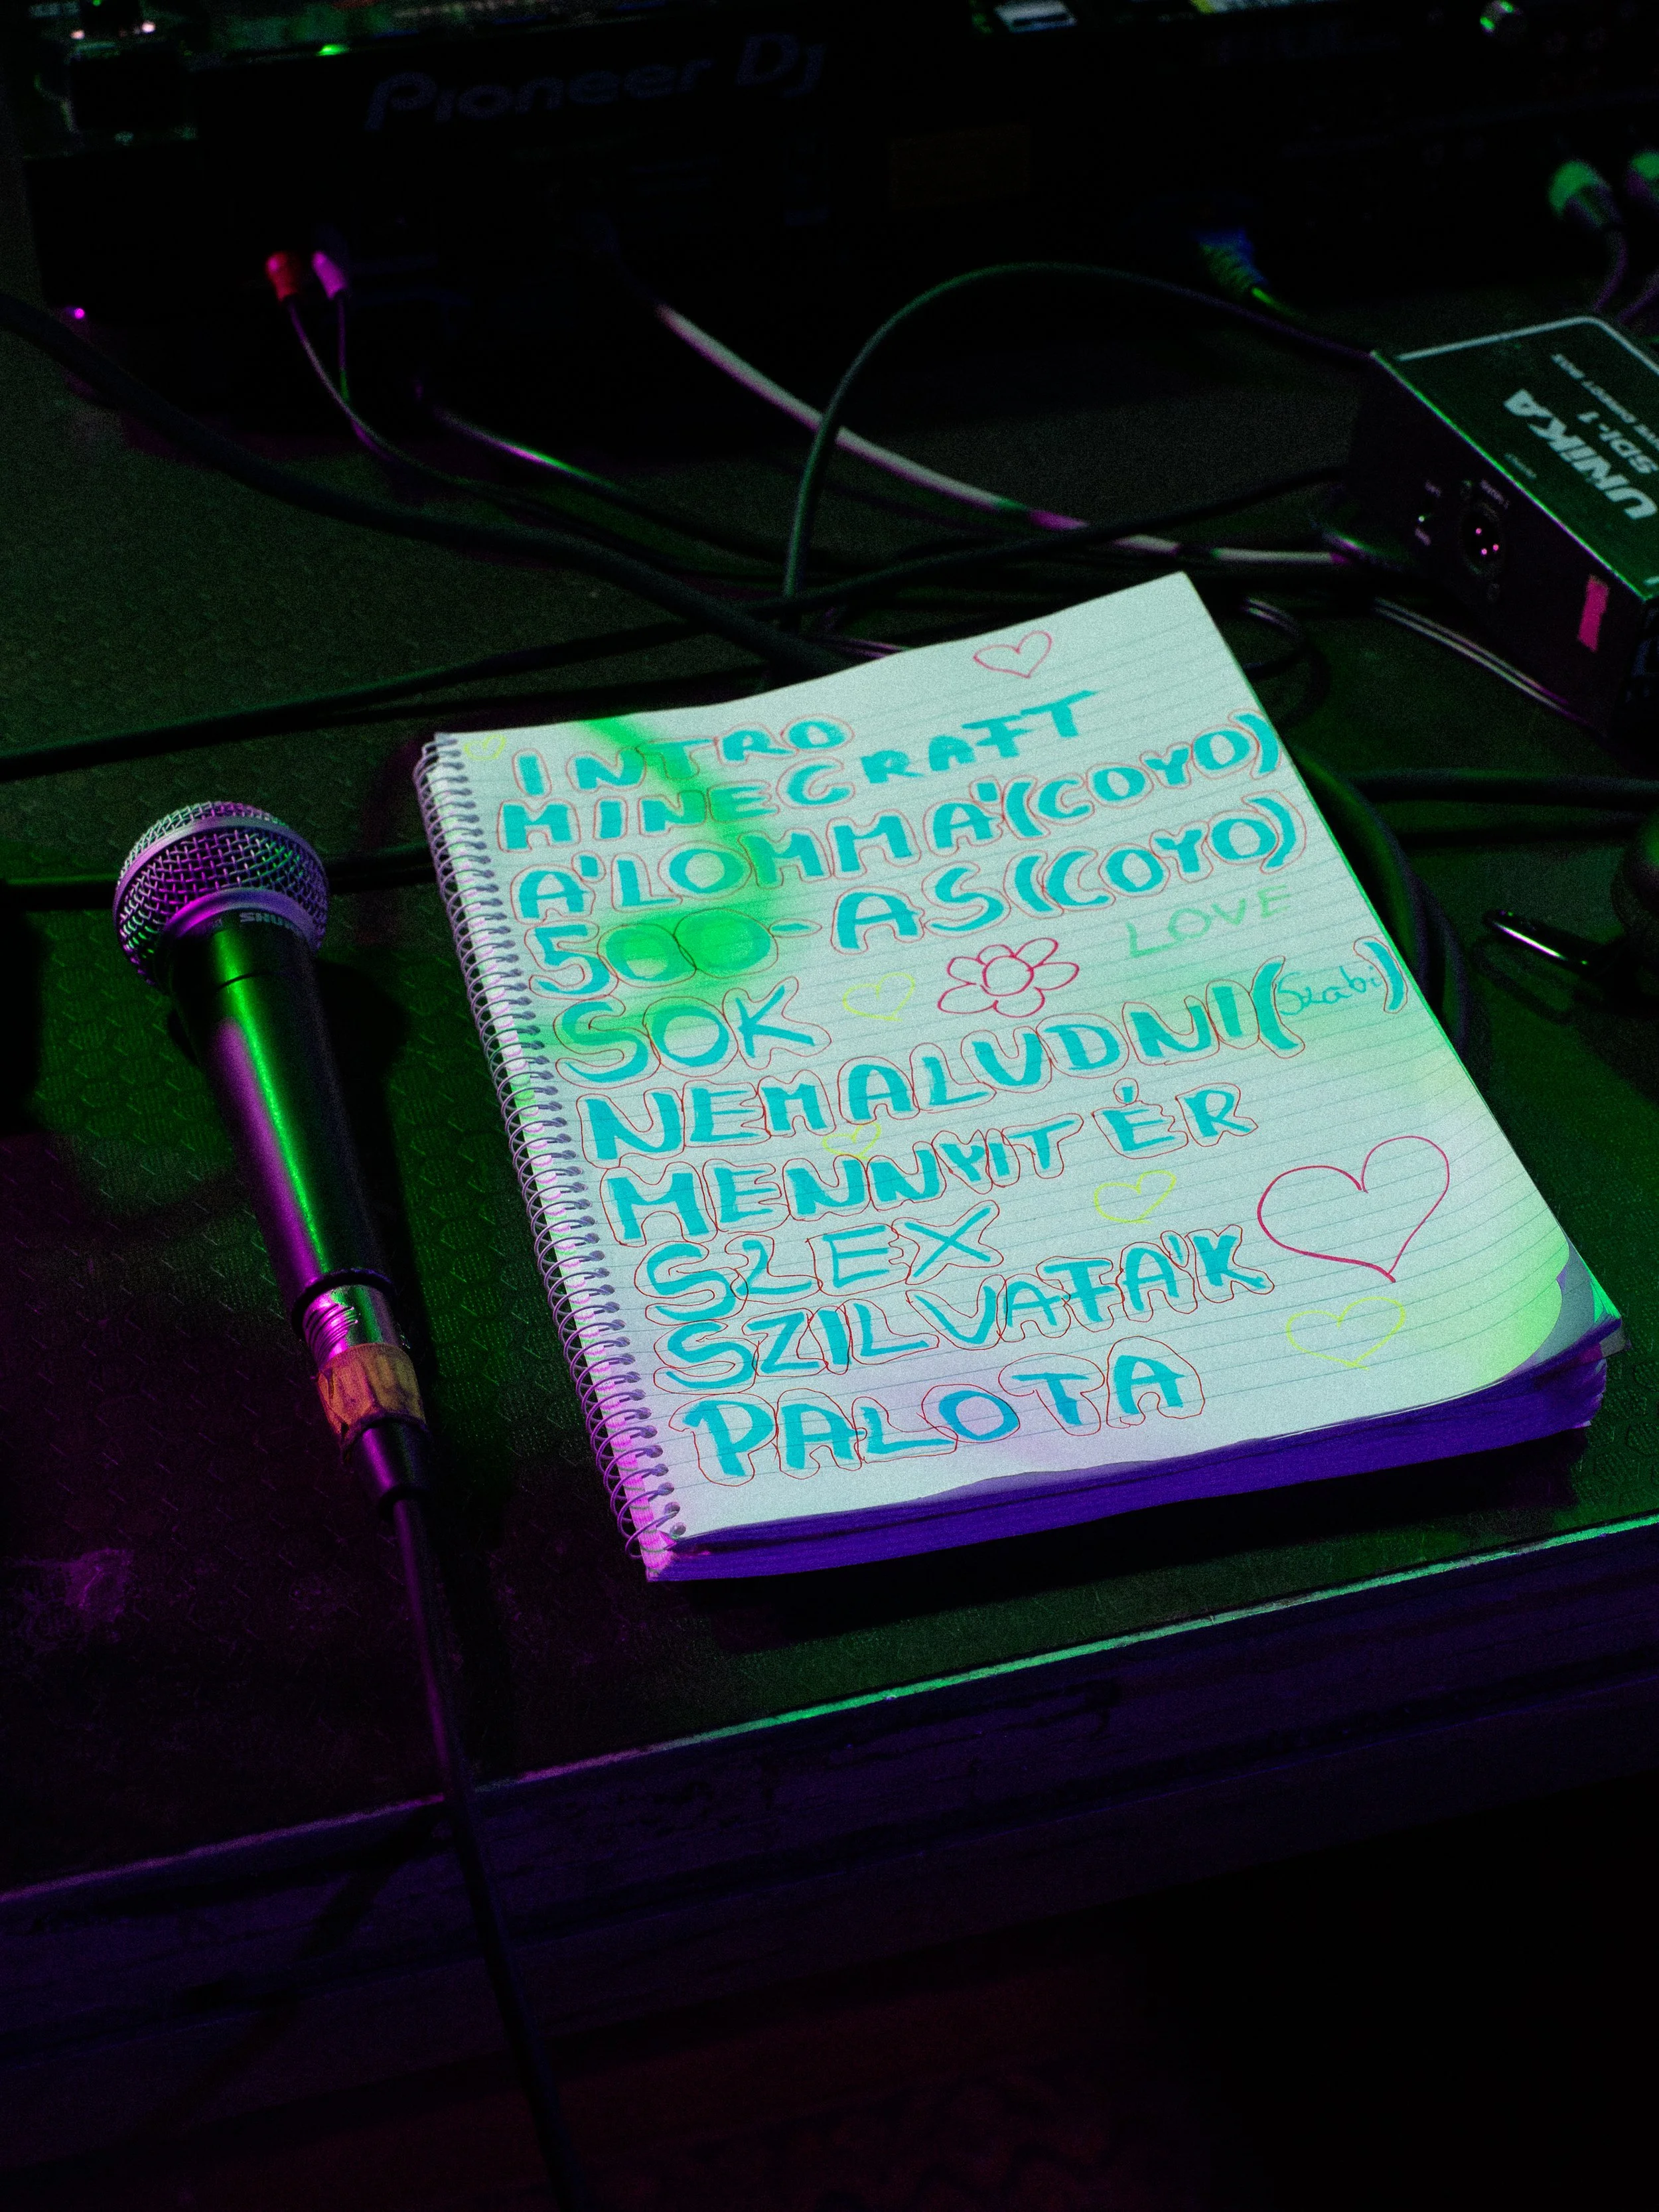 Pioneer Dj
UNiKA
SDI-1
SHURE
INTRO
MINECRAFT
A'LOMMA'(COYO)
500-AS(COYO)
LOVE
SOK
NEMALUDNI(Szabi)
MENNYIT ÉR
SZEX
SZILVAFA'K
PALOTA